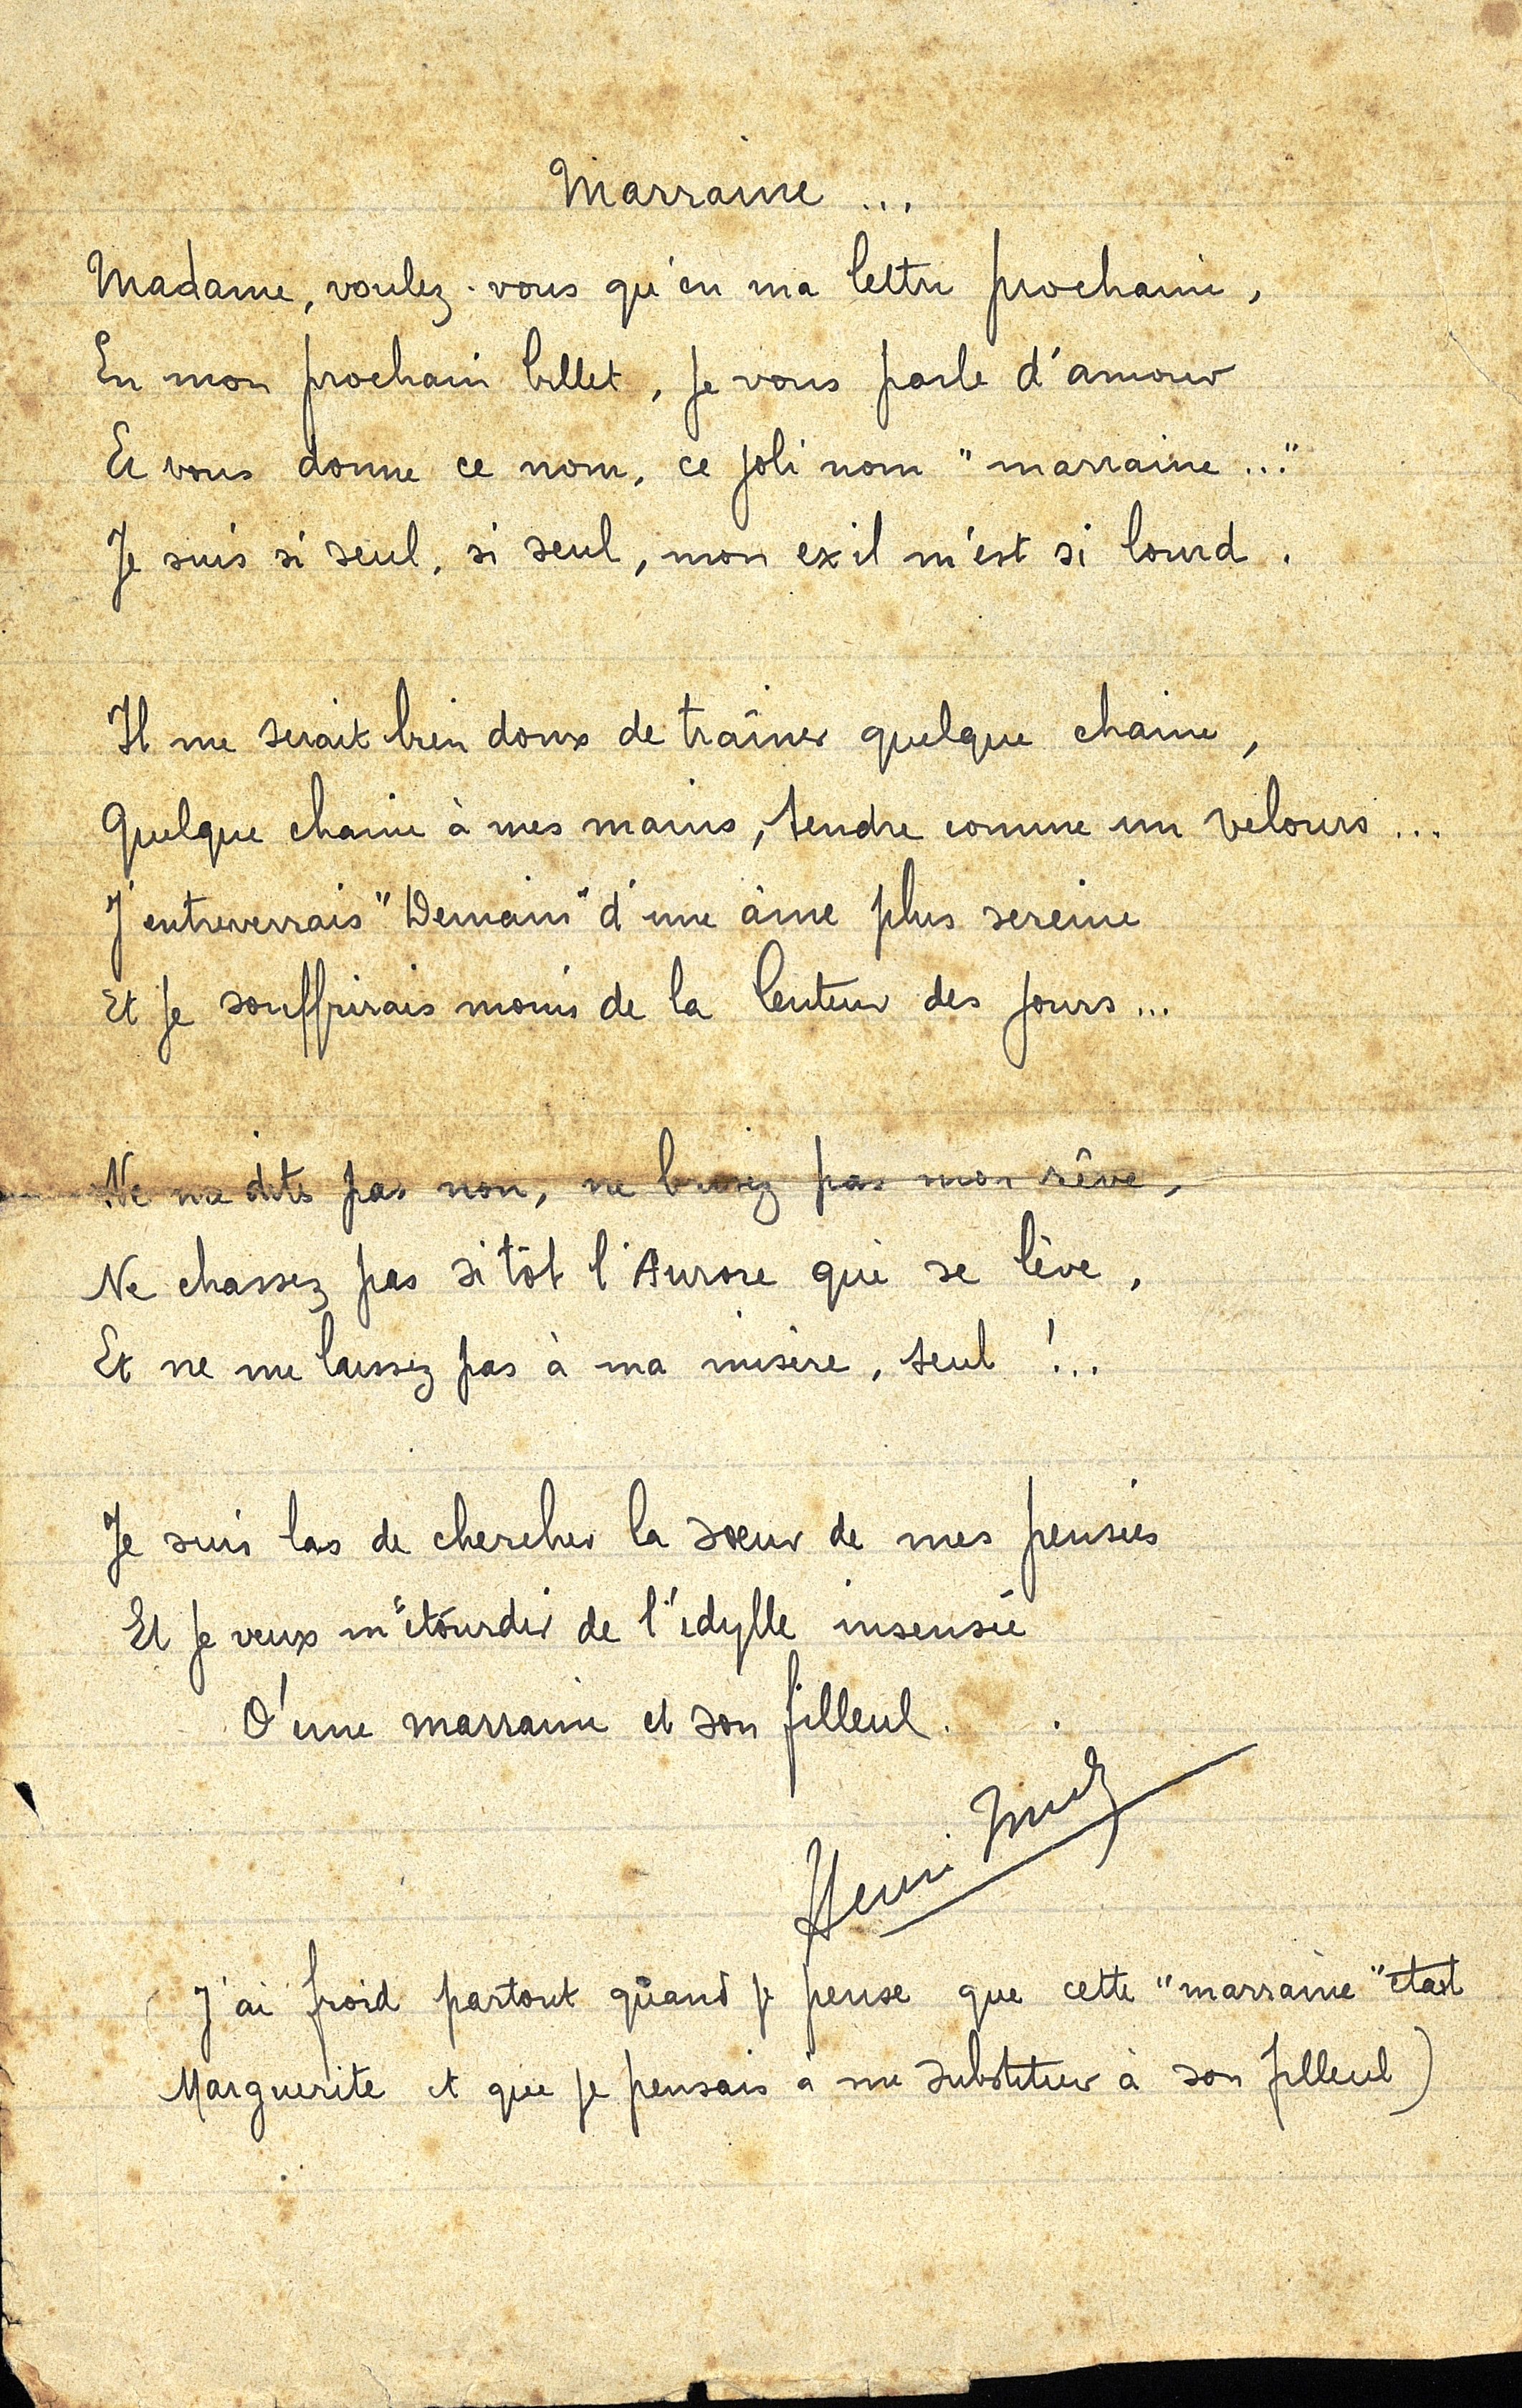 Marraine ...
Madame, voulez-vous qu'en ma lettre prochaine,
En mon prochain billet, je vous parle d'amour
Et vous donne ce nom, ce joli nom "marraine..."
Je suis si seul, si seul, mon exil m'est si lourd.
Il me serait bien doux de traîner quelque chaine,
Quelque chaine à mes mains, tendre comme un velours...
J'entreverrais "Demain" d'une âme plus sereine
Et je souffrirais moins de la lenteur des jours...
Ne me dites pas non, ne brisez pas mon rêve,
Ne chassez pas si tôt l'Aurore qui se lève,
Et ne me laissez pas à ma misère, seul !..
Je suis las de chercher la soeur de mes pensées
Et je veux m'étourdir de l'idylle insensée
D'une marraine et son filleul.
Henri
(J'ai froid partout quand je pense que cette "marraine" était
Marguerite et que je pensais à me substituer à son filleul)